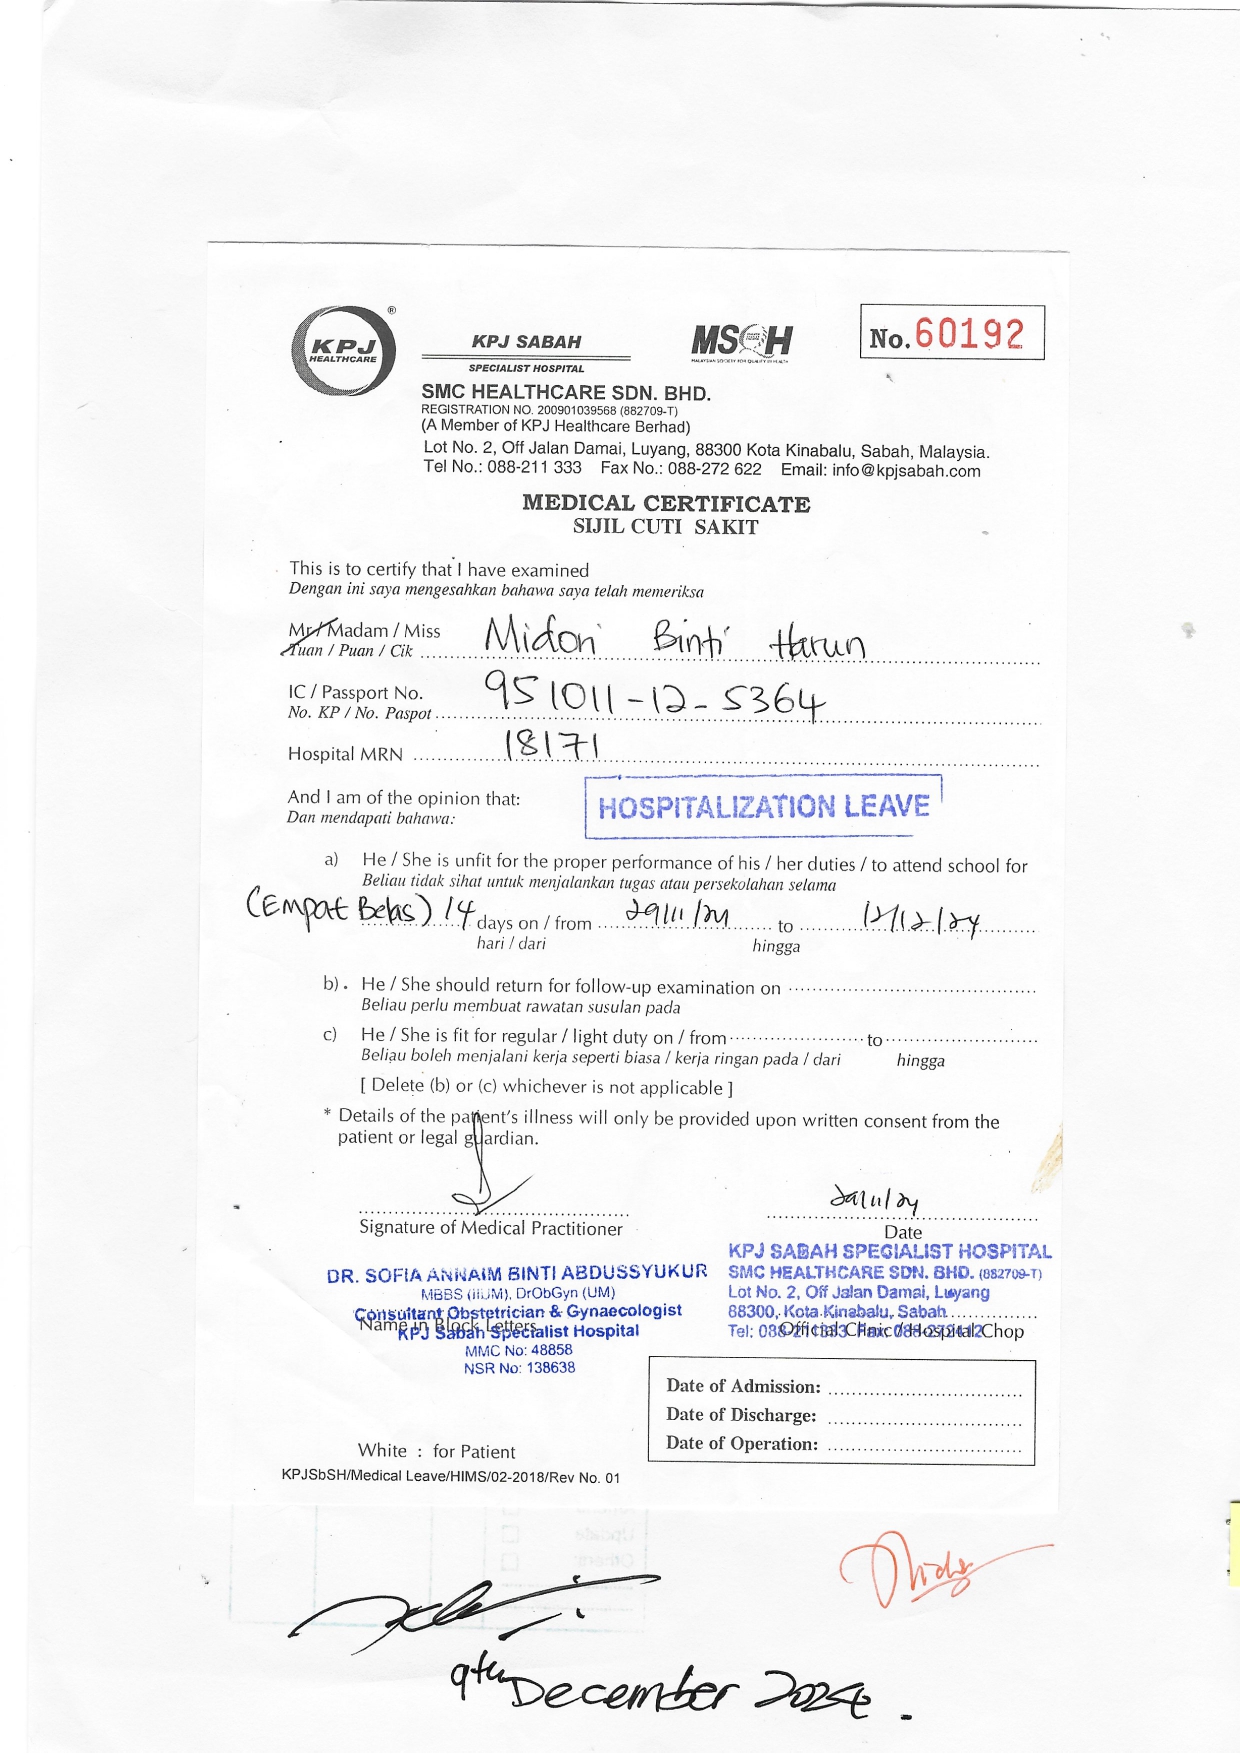 KPJ
HEALTHCARE
®
KPJ SABAH
SPECIALIST HOSPITAL
MSQH
MALAYSIAN SOCIETY FOR QUALITY IN HEALTH
No. 60192
SMC HEALTHCARE SDN. BHD.
REGISTRATION NO. 200901039568 (882709-T)
(A Member of KPJ Healthcare Berhad)
Lot No. 2, Off Jalan Damai, Luyang, 88300 Kota Kinabalu, Sabah, Malaysia.
Tel No.: 088-211 333 Fax No.: 088-272 622 Email: info@kpjsabah.com
MEDICAL CERTIFICATE
SIJIL CUTI SAKIT
This is to certify that I have examined
Dengan ini saya mengesahkan bahawa saya telah memeriksa
Mr / Madam / Miss Midori Binti Harun
Tuan / Puan / Cik
IC / Passport No. 951011-12-5364
No. KP / No. Paspot
Hospital MRN 18171
And I am of the opinion that:
Dan mendapati bahawa:
HOSPITALIZATION LEAVE
a) He / She is unfit for the proper performance of his / her duties / to attend school for
Beliau tidak sihat untuk menjalankan tugas atau persekolahan selama
(Empat Belas) 14 days on / from 29/11/24 to 12/12/24
hari / dari hingga
b). He / She should return for follow-up examination on
Beliau perlu membuat rawatan susulan pada
c) He / She is fit for regular / light duty on / from to
Beliau boleh menjalani kerja seperti biasa / kerja ringan pada / dari hingga
[ Delete (b) or (c) whichever is not applicable ]
* Details of the patient's illness will only be provided upon written consent from the
patient or legal guardian.
29/11/24
Signature of Medical Practitioner
Date
DR. SOFIA ANNAIM BINTI ABDUSSYUKUR
MBBS (IIUM), DrObGyn (UM)
Consultant Obstetrician & Gynaecologist
Name in Block Letters
KPJ Sabah Specialist Hospital
MMC No: 48858
NSR No: 138638
KPJ SABAH SPECIALIST HOSPITAL
SMC HEALTHCARE SDN. BHD. (882709-T)
Lot No. 2, Off Jalan Damai, Luyang
88300, Kota Kinabalu, Sabah
Tel: 088-211333 Fax:
Official Clinic / Hospital Chop
Date of Admission:
Date of Discharge:
Date of Operation:
White : for Patient
KPJSbSH/Medical Leave/HIMS/02-2018/Rev No. 01
9th December 2024.